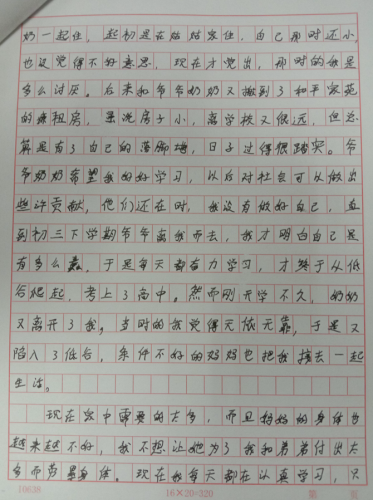 奶一起住，起初是在姑姑家住，自己那时还小，
也没觉得不好意思，现在才觉出，那时的我是
多么讨厌。后来和爷爷奶奶又搬到了和平家苑
的廉租房，虽说房子小，离学校又很远，但总
算是有了自己的落脚地，日子过得很踏实。爷
爷奶奶希望我的好学习，以后对社会可以做出
些许贡献，他们还在时，我没有做好自己，直
到初三下学期爷爷离我而去，我才明白自己是
有多么蠢，于是每天都奋力学习，才终于从低
谷爬起，考上了高中。然而刚开学不久，奶奶
又离开了我。当时的我觉得无依无靠，于是又
陷入了低谷，条件不好的妈妈也把我接去一起
生活。
现在家中需要的太多，而且妈妈的身体也
越来越不好，我不想让她为了我和弟弟付出太
多而劳累身体。现在我每天都在认真学习，只
10639
16×20=320
第 页